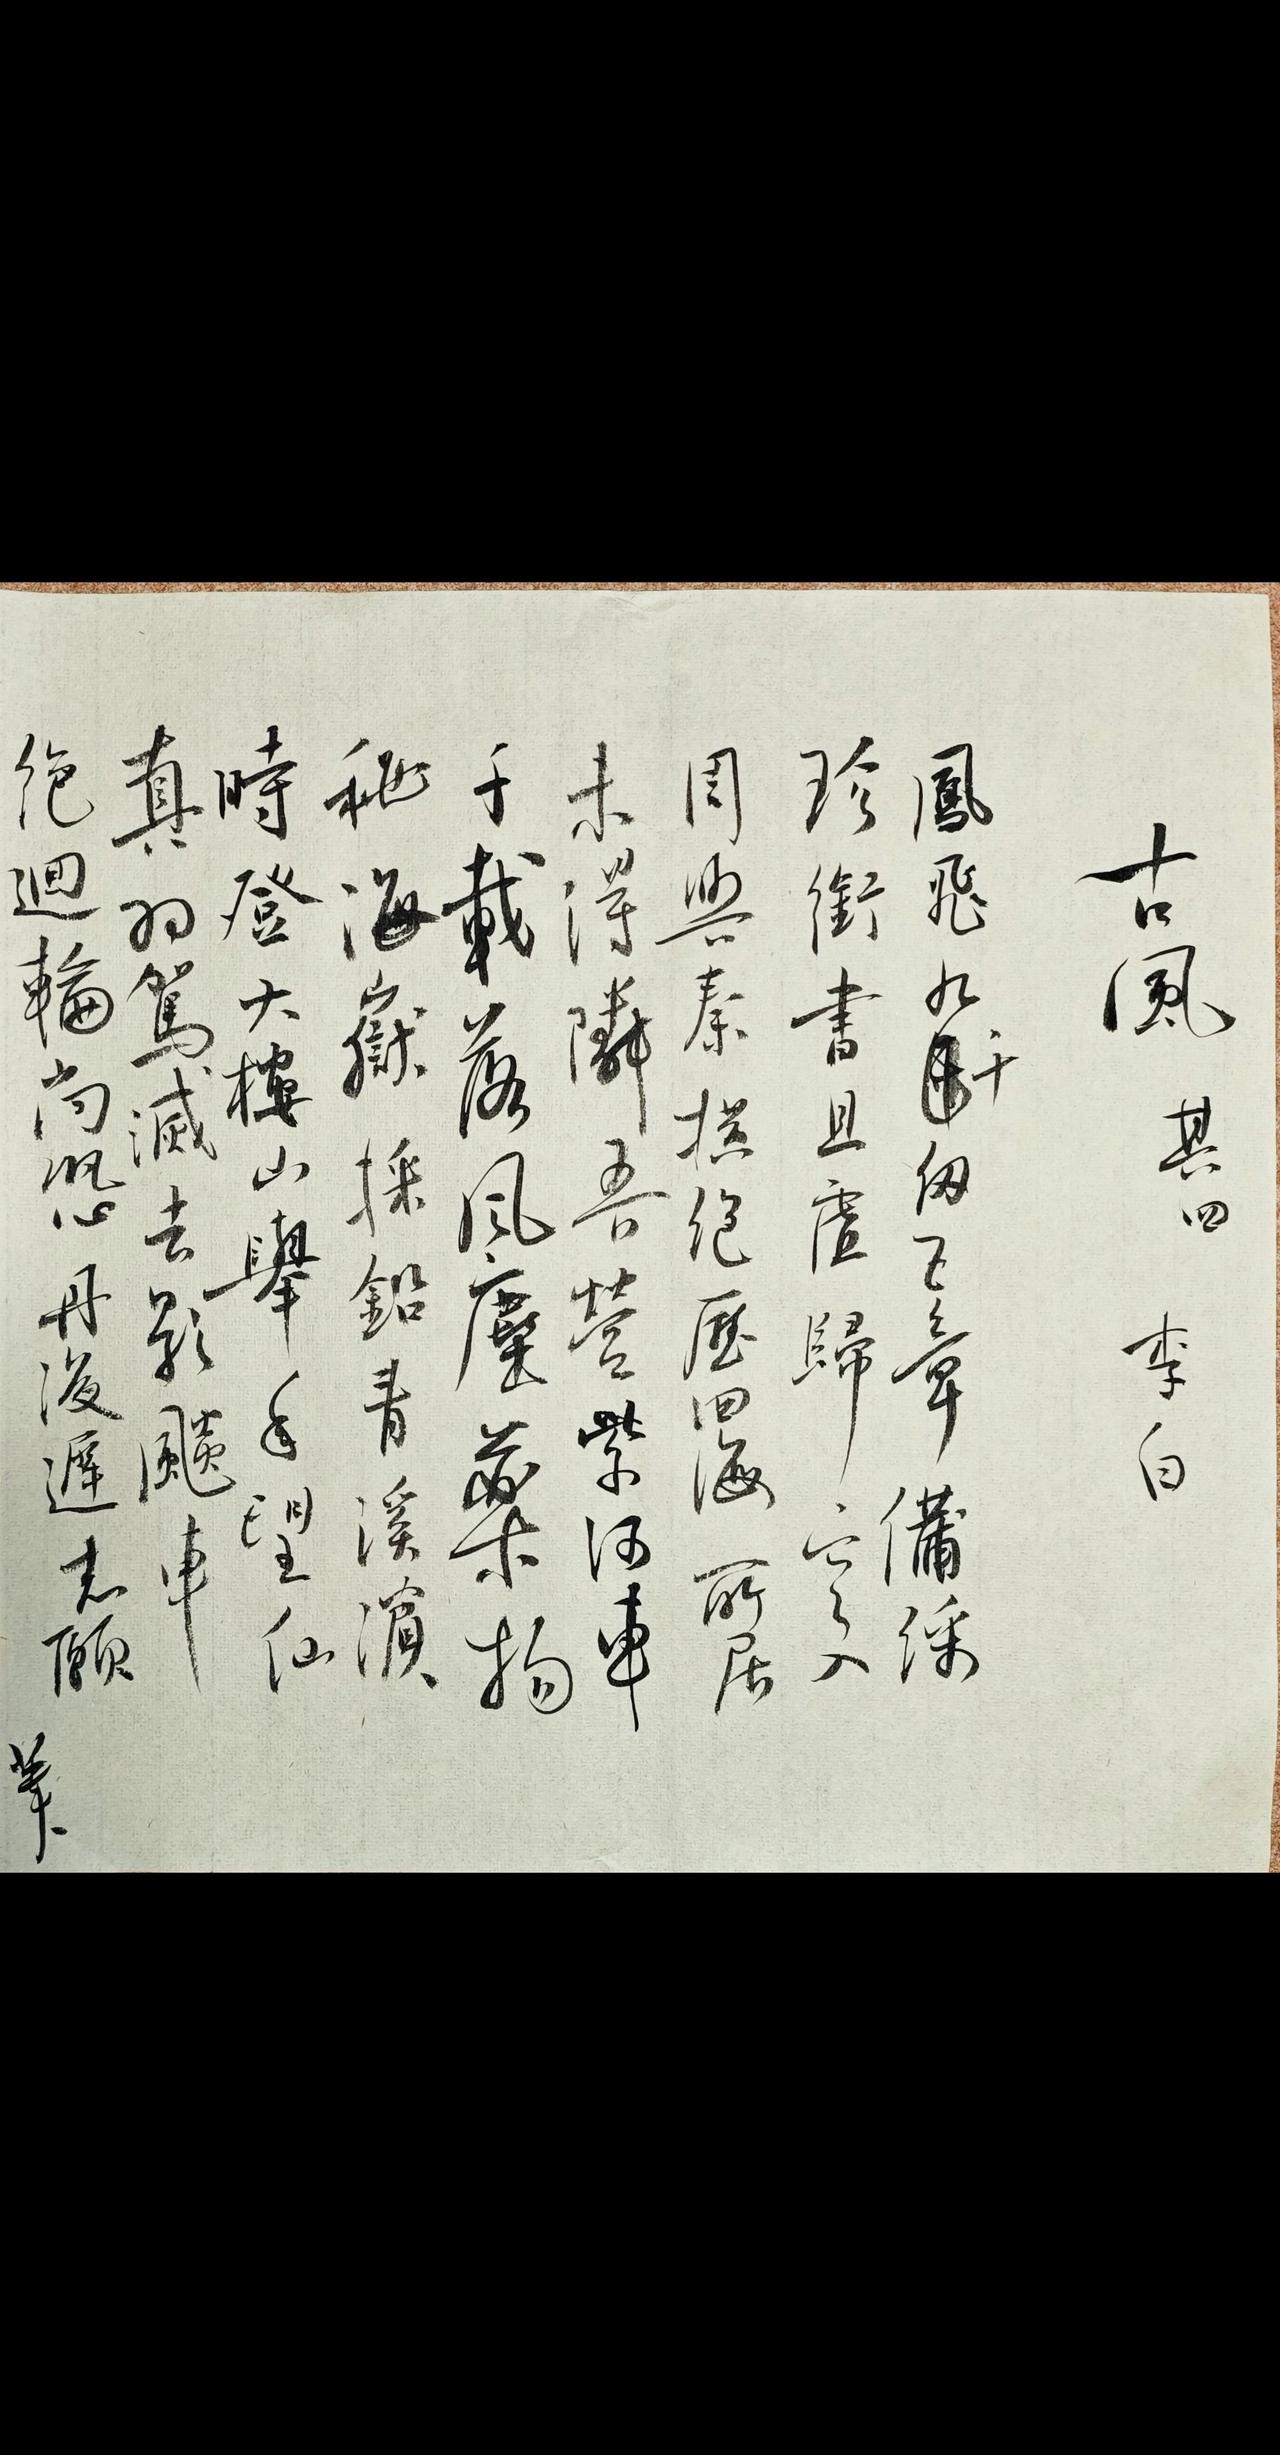 古風 其四 李白
鳳飛九千仞五章備綵
珍銜書且虛歸空入
周與秦橫絕歷四海所居
未得鄰吾營紫河車
千載落風塵藥物
秘海嶽採鉛青溪濱
時登大樓山舉手望仙
真羽駕滅去影飈車
絕迴輪尚恐丹液遲志願